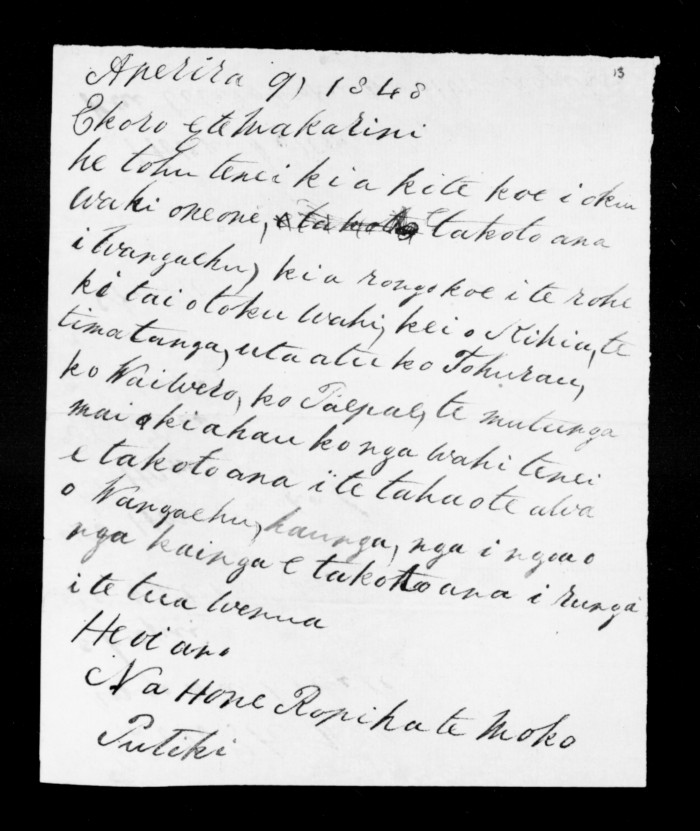 13
Aperira 9, 1848
Ekoro e te Makarini
he tohu tenei kia kite koe i oku
waki oneone, e takoto ana
i Wangaehu, kia rongo koe i te rohe
ki tai o toku wahi, kei o Kihia, te
timatanga, uta atu ko Tohurau,
ko Waiwero, ko Taepae, te mutunga
mai ki ahau ko nga wahi tenei
e takoto ana i te taha o te awa
o Wangaehu, haunga, nga i ngao
nga kainga e takoto ana i runga
i te tua wenua
Heoi ano
Na Hone Ropiha te Moko
Putiki